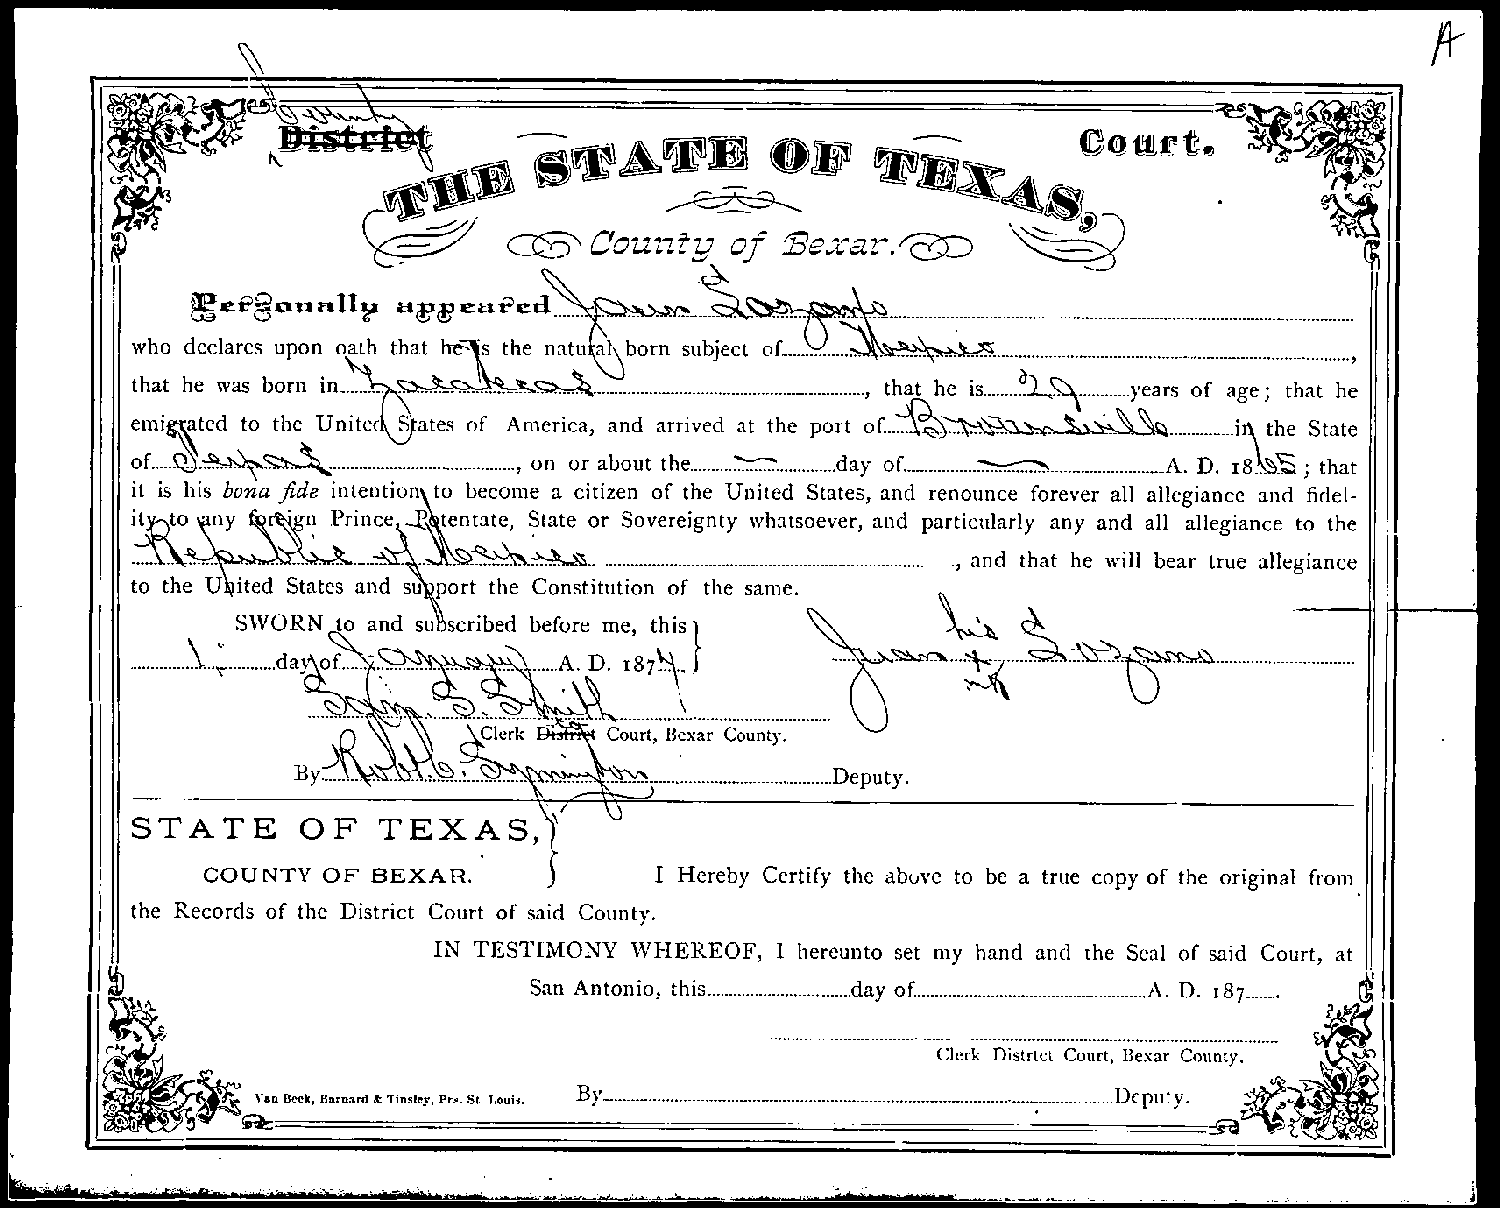 A
County
District Court.
THE STATE OF TEXAS,
County of Bexar.
Personally appeared Juan Lozano
who declares upon oath that he is the natural born subject of Mexico,
that he was born in Zacatecas, that he is 29 years of age; that he
emigrated to the United States of America, and arrived at the port of Brownsville in the State
of Texas, on or about the — day of — A. D. 1865; that
it is his bona fide intention to become a citizen of the United States, and renounce forever all allegiance and fidel-
ity to any foreign Prince, Potentate, State or Sovereignty whatsoever, and particularly any and all allegiance to the
Republic of Mexico, and that he will bear true allegiance
to the United States and support the Constitution of the same.
SWORN to and subscribed before me, this
1. day of January A. D. 1874
his
Juan x Lozano
mk
Sam. S. Smith
Clerk District Court, Bexar County.
By Robt. C. Deputy.
STATE OF TEXAS,
COUNTY OF BEXAR.
I Hereby Certify the above to be a true copy of the original from
the Records of the District Court of said County.
IN TESTIMONY WHEREOF, I hereunto set my hand and the Seal of said Court, at
San Antonio, this day of A. D. 187 .
Clerk District Court, Bexar County.
Van Beek, Barnard & Tinsley, Prs. St. Louis.
By Deputy.